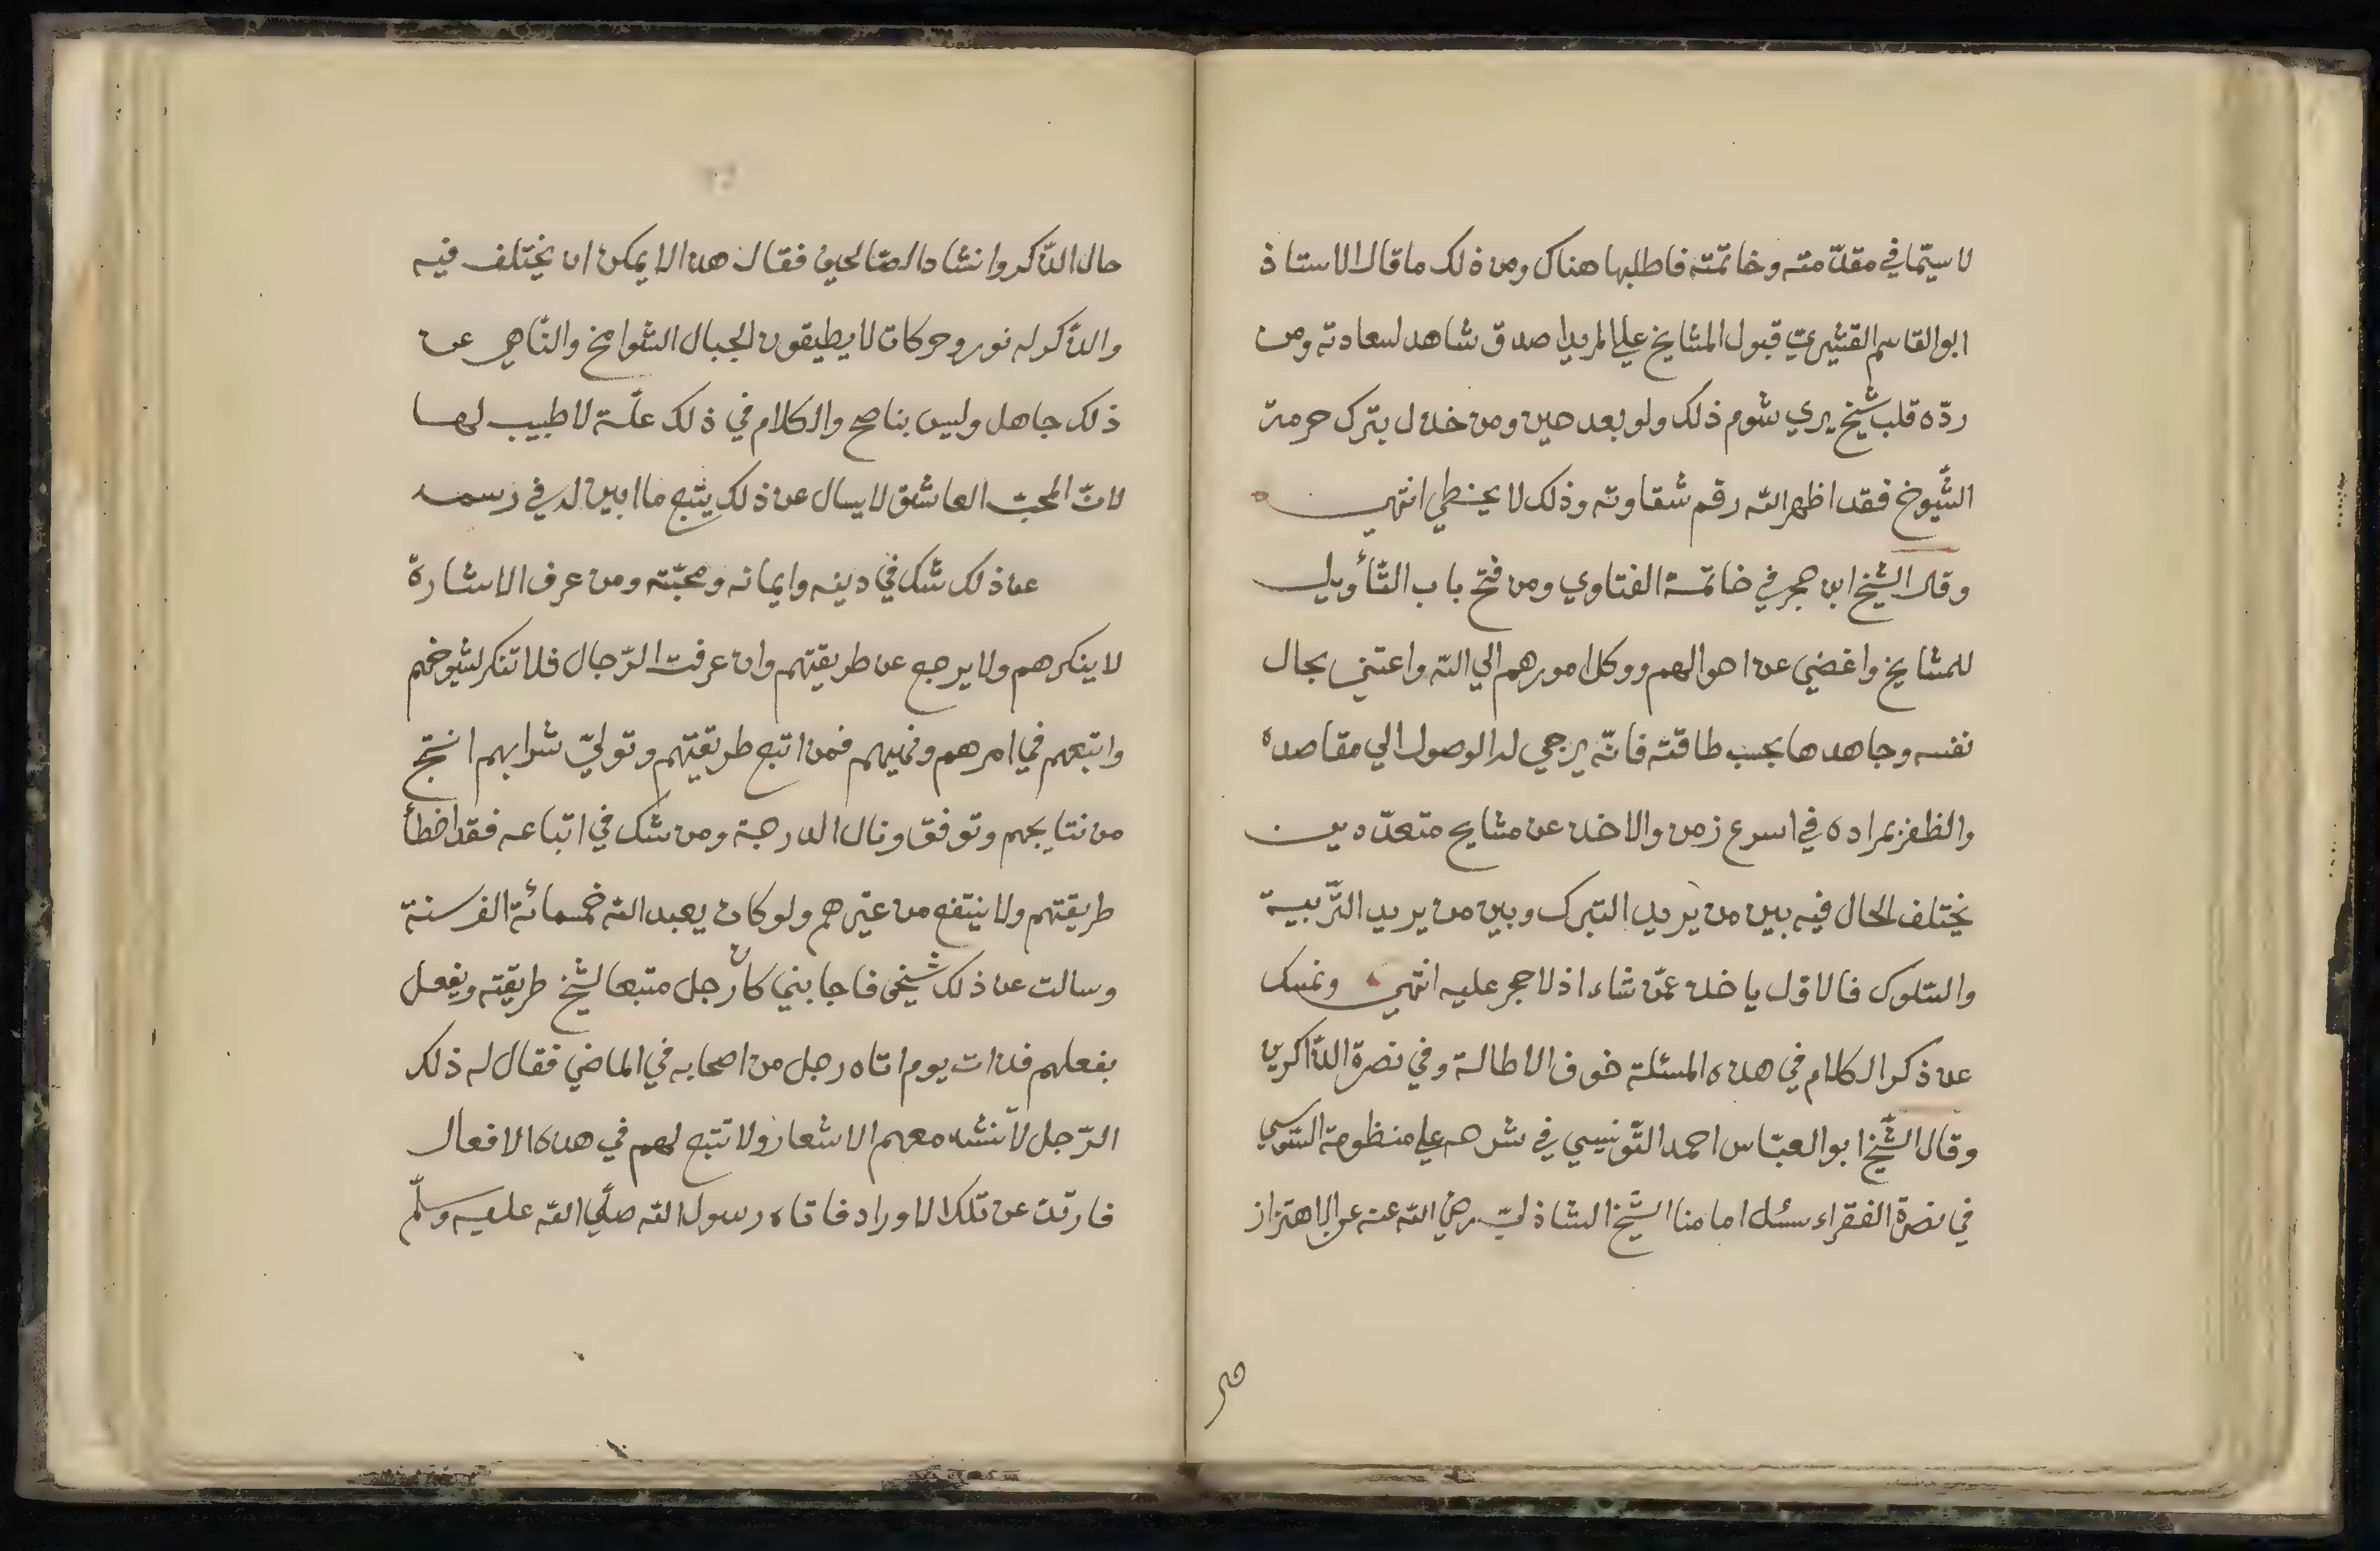 لا سيّما في مقدّمته وخاتمته فاطلبها هناك ومن ذلك ما قال الاستاذ
ابو القاسم القشيريّ قبول المشايخ علي المريد اصدق شاهد لسعادته ومن
ردّه قلب شيخ يري شوم ذلك ولو بعد حين ومن خذل بترك حرمة
الشّيوخ فقد اظهر الله رقم شقاوته وذلك لا يخطي انتهي
وقال الشيخ ابن حجر في خاتمة الفتاوي ومن فتح باب التّأويل
للمشايخ واغضي عن احوالهم ووكل امورهم الي الله واعتني بحال
نفسه وجاهدها بحسب طاقته فانّه يرجي له الوصول الي مقاصده
والظفر بمراده في اسرع زمن والاخذ عن مشايخ متعدّدين
يختلف الحال فيه بين من يريد التبرك وبين من يريد التّربية
والسّلوك فالاوّل ياخذ عمّن شاء اذ لا حجر عليه انتهي ونمسك
عن ذكر الكلام في هذه المسئلة خوف الاطالة وفي نصرة الذّاكرين
وقال الشّيخ ابو العبّاس احمد التّونيسي في شرحه علي منظومة السّنوسي
في نصرة الفقراء سئل امامنا الشّيخ الشاذليّ رضي الله عنه عن الاهتزاز
حال الذّكر وانشاد الصّالحين فقال هذا لا يمكن ان يختلف فيه
والذّكر له نور وحركات لا يطيقون الجبال الشّوامخ والنّاهي عن
ذلك جاهل وليس بناصح والكلام في ذلك علّة لا طبيب لها
لانّ المحبّ العاشق لا يسال عن ذلك يتبع ما ابين له في رسمه
عن ذلك شك في دينه وايمانه ومحبّته ومن عرف الاشارة
لا ينكرهم ولا يرجع عن طريقتهم وان عرفت الرّجال فلا تنكر لشيوخهم
واتبعهم في امرهم ونهيهم فمن اتبع طريقتهم وتوليّ شرابهم انتج
من نتايجهم وتوفق ونال الدرجة ومن شك في اتباعه فقد اخطأ
طريقتهم ولا ينتفع من غيرهم ولو كان يعبد الله خمسمائة الف سنة
وسالت عن ذلك شيخي فاجابني كان رجل متبعا لشيخ طريقته ويفعل
بفعلهم فذات يوم اتاه رجل من اصحابه في الماضي فقال له ذلك
الرّجل لا تنشد معهم الاشعار ولا تتبع لهم في هذه الافعال
فارتدّ عن تلك الاوراد فاتاه رسول الله صلّي الله عليه وسلّم